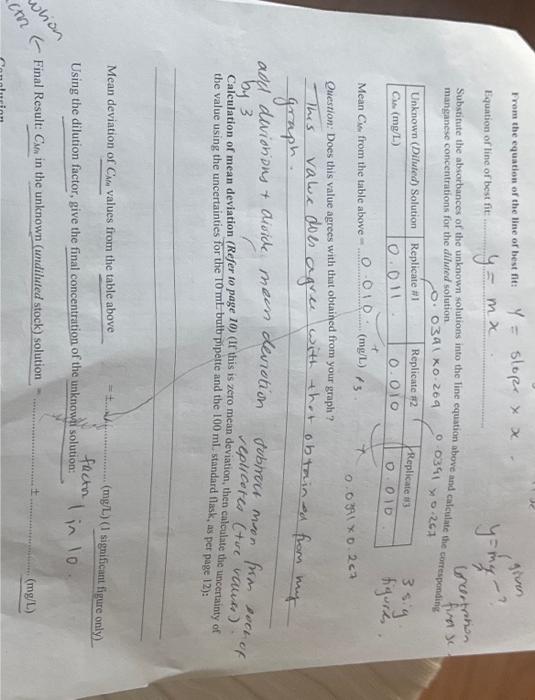 From the equation of the line of best fit: y = slope x x
Equation of line of best fit: y = mx
given
y = mx
concentration
first
Substitute the absorbances of the unknown solutions into the line equation above and calculate the corresponding manganese concentrations for the diluted solution.
0.0391 x 0.269 0.0391 x 0.267
Unknown (Diluted) Solution Replicate #1 Replicate #2 Replicate #3
C_Mn (mg/L) 0.011 0.010 0.010
3 sig figures
Mean C_Mn from the table above = 0.010 (mg/L) 0.0391 x 0.267
Question: Does this value agree with that obtained from your graph?
This value does agree with that obtained from my
graph.
add deviations + divide mean deviation subtract mean from each of
by 3 replicates (+ve values).
Calculation of mean deviation (Refer to page 10) (If this is zero mean deviation, then calculate the uncertainty of
the value using the uncertainties for the 10 mL bulb pipette and the 100 mL standard flask, as per page 12):
Mean deviation of C_Mn values from the table above = ± (mg/L) (1 significant figure only)
Using the dilution factor, give the final concentration of the unknown solution:
factor 1 in 10.
which
Final Result: C_Mn in the unknown (undiluted stock) solution = ± (mg/L)
Conclusion